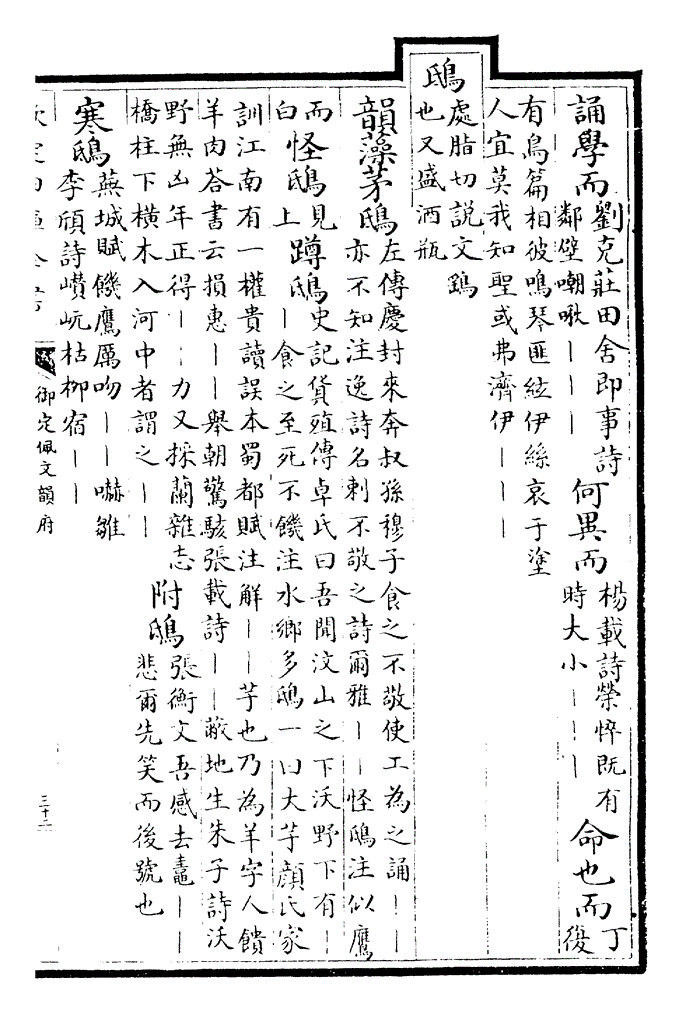 誦學而劉克莊田舍即事詩
鄰壁嘲啾｜｜｜
何異而楊載詩榮悴既有
時大小｜｜｜
命也而丁
復
有鳥篇相彼鳴琴匪絃伊絲哀于塗
人宜莫我知聖或弗濟伊｜｜｜
鴟處脂切説文
也又盛酒瓶
韻藻茅鴟左傳慶封來奔叔孫穆子食之不敬使工為之誦｜｜
亦不知注逸詩名刺不敬之詩爾雅｜｜怪鴟注似鷹
而
白
怪鴟見
上
蹲鴟史記貨殖傳卓氏曰吾聞汶山之下沃野下有｜
｜食之至死不饑注水鄉多鴟一曰大芋顔氏家
訓江南有一權貴讀誤本蜀都賦注解｜｜芋也乃為羊字人饋
羊肉荅書云損惠｜｜舉朝驚駭張載詩｜｜蔽地生朱子詩沃
野無凶年正得｜｜力又採蘭雜志
橋柱下横木入河中者謂之｜｜
附鴟張衡文吾感去鼃｜｜
悲爾先笑而後號也
寒鴟蕪城賦饑鷹厲吻｜｜嚇雛
李頎詩巑岏枯栁宿｜｜
欽定四庫全書
御定佩文韻府
三十二